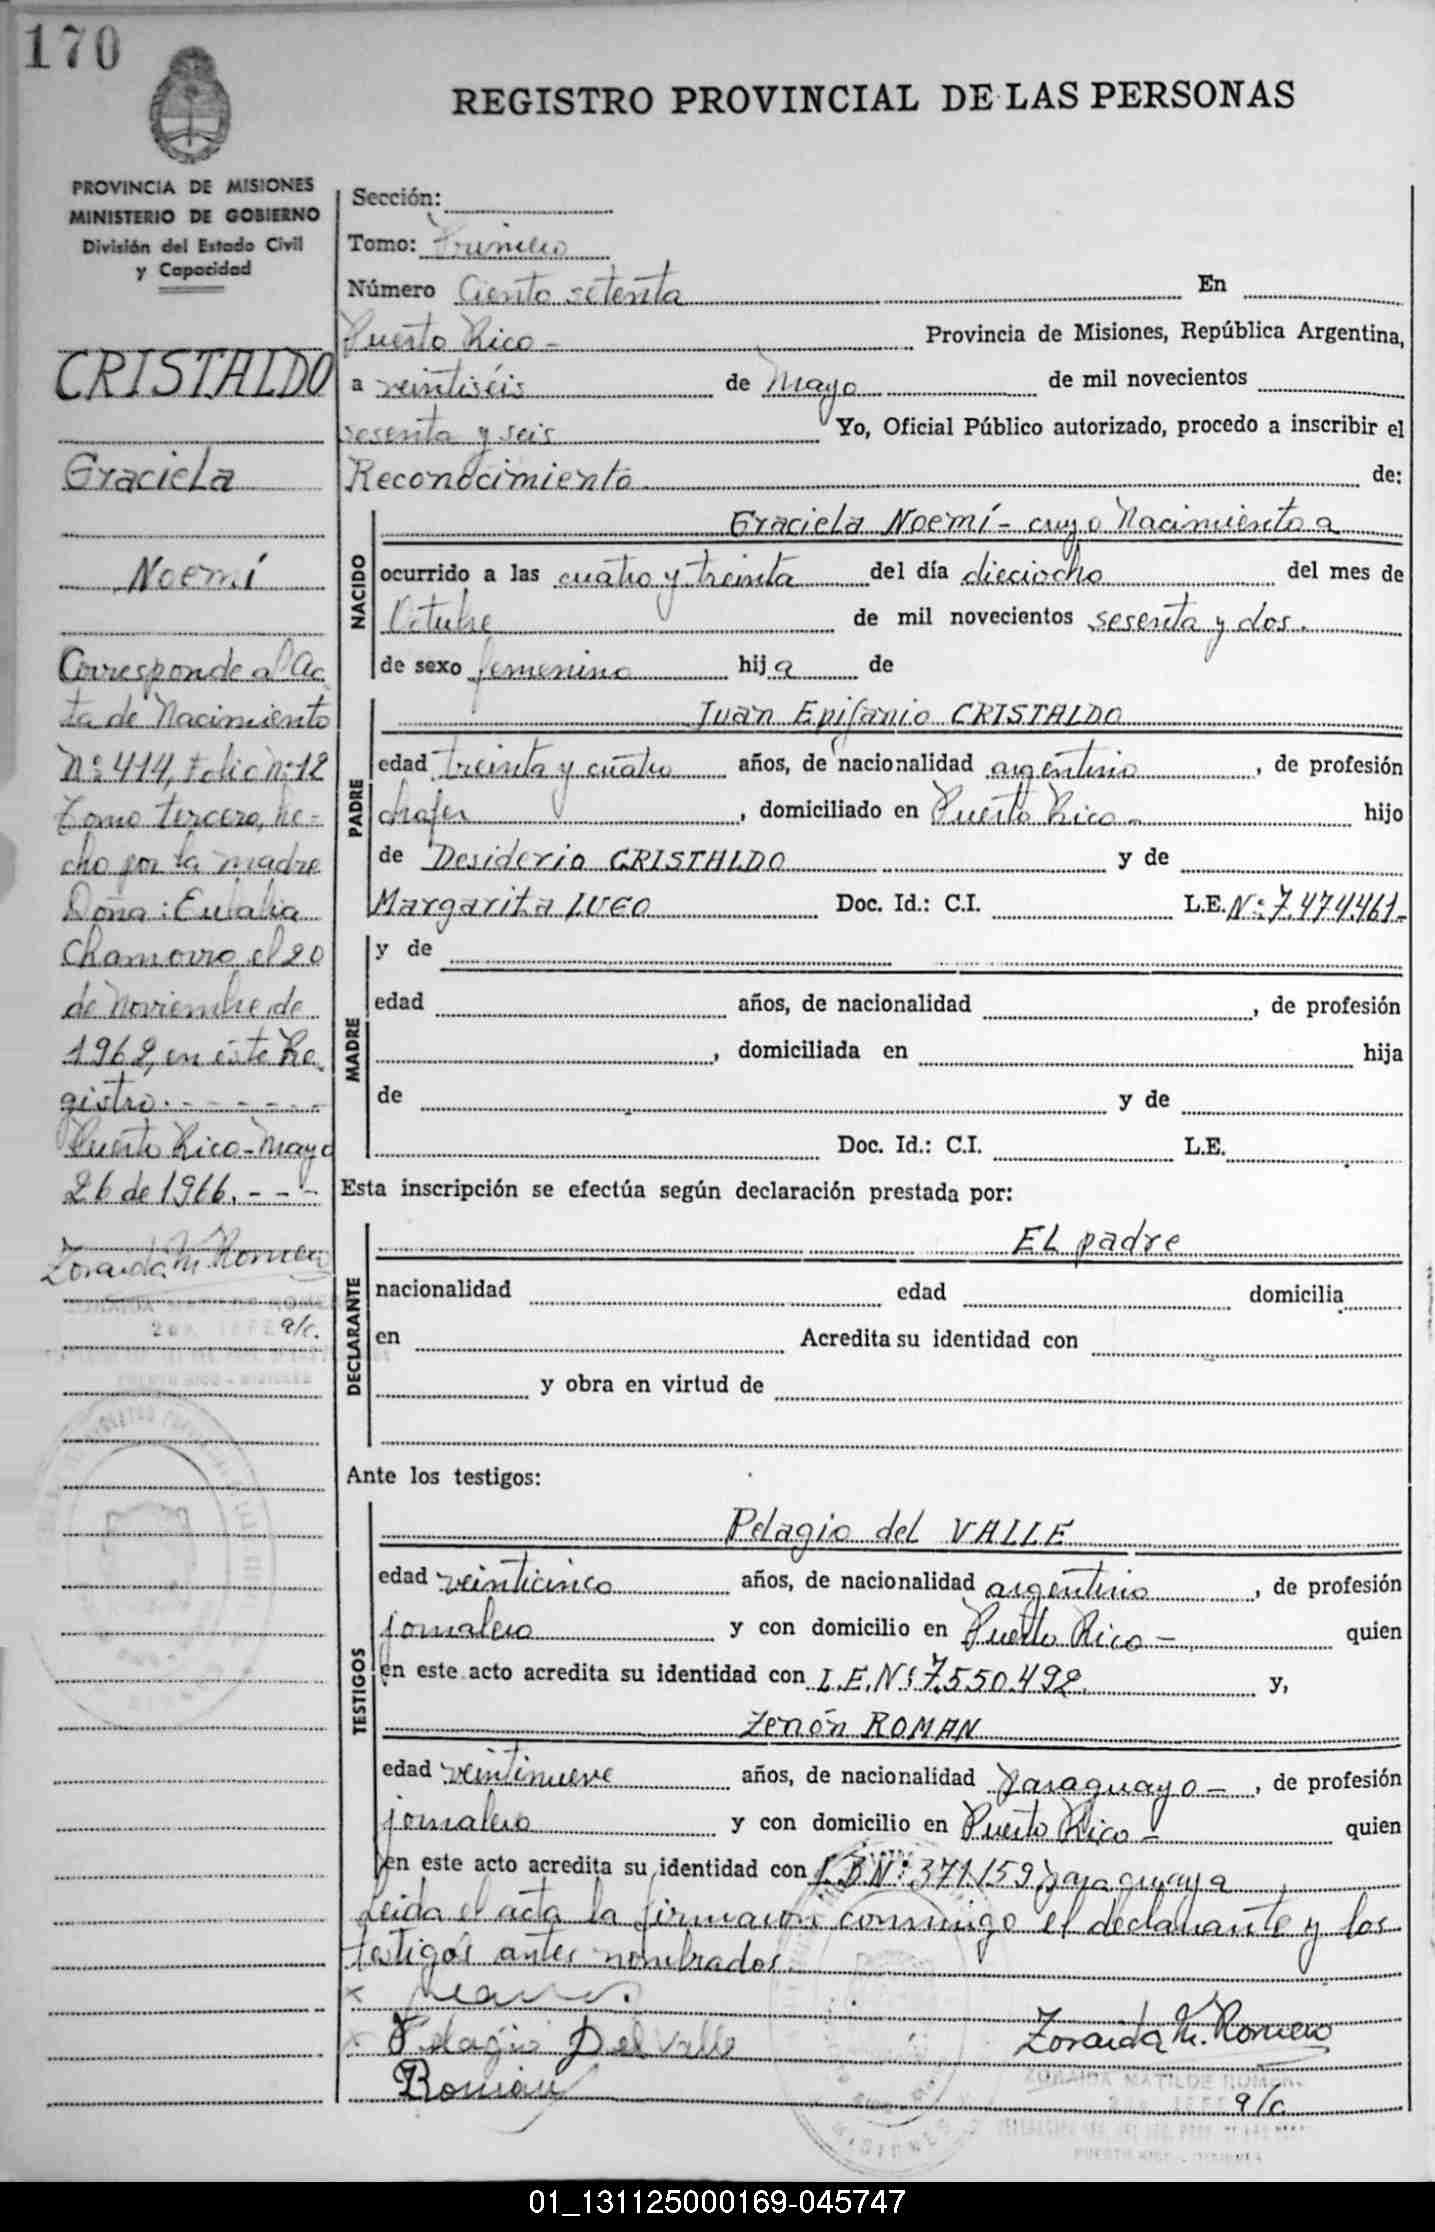 170
REGISTRO PROVINCIAL DE LAS PERSONAS
PROVINCIA DE MISIONES
MINISTERIO DE GOBIERNO
División del Estado Civil
y Capacidad
CRISTALDO
Graciela
Noemí
Corresponde al Ac
ta de Nacimiento
Nº 414, Folio nº 12
Tomo tercero, he-
cho por la madre
Doña: Eulalia
Chamorro el 20
de Noviembre de
1962, en éste Re
gistro. - - - - - -
Puerto Rico - Mayo
26 de 1966. - - -
Zoraida M. Romero
a/c.
Sección:
Tomo: Primero
Número Ciento setenta En
Puerto Rico - Provincia de Misiones, República Argentina,
a veintiséis de Mayo de mil novecientos
sesenta y seis Yo, Oficial Público autorizado, procedo a inscribir el
Reconocimiento de:
NACIDO
Graciela Noemí - cuyo Nacimiento a
ocurrido a las cuatro y treinta del día dieciocho del mes de
Octubre de mil novecientos sesenta y dos.
de sexo femenino hija de
PADRE
Juan Epifanio CRISTALDO
edad treinta y cuatro años, de nacionalidad argentino, de profesión
chofer, domiciliado en Puerto Rico - hijo
de Desiderio CRISTALDO y de
Margarita LUGO Doc. Id.: C.I. L.E. Nº 7.474.461-
MADRE
y de
edad años, de nacionalidad , de profesión
, domiciliada en hija
de y de
Doc. Id.: C.I. L.E.
Esta inscripción se efectúa según declaración prestada por:
DECLARANTE
El padre
nacionalidad edad domicilia
en Acredita su identidad con
y obra en virtud de
Ante los testigos:
TESTIGOS
Pelagio del VALLE
edad veinticinco años, de nacionalidad argentino, de profesión
jornalero y con domicilio en Puerto Rico - quien
en este acto acredita su identidad con L.E. Nº 7.550.492. y,
Zenón ROMAN
edad veintinueve años, de nacionalidad Paraguayo -, de profesión
jornalero y con domicilio en Puerto Rico - quien
en este acto acredita su identidad con Nº: 371159 paraguaya
Leida el acta la firmaron conmigo el declarante y los
testigos antes nombrados.
Pelagio Del Valle
Zoraida M. Romero
Roman
ZORAIDA MATILDE ROMERO
a/c.
PUERTO RICO - MISIONES
01_131125000169-045747